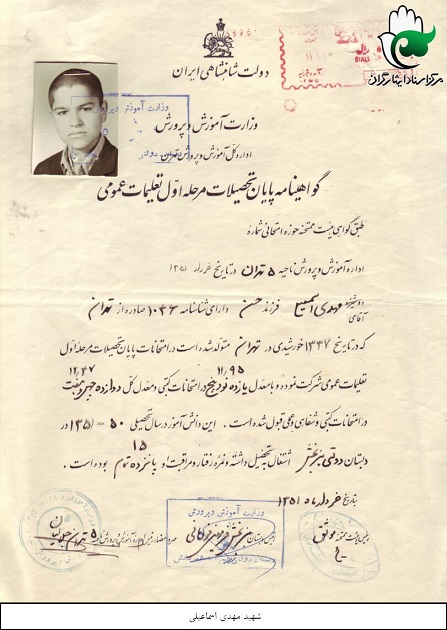 مرکز اسناد ایثارگران
دولت شاهنشاهی ایران
RIALS
وزارت آموزش و پرورش
وزارت آموزش و پرورش
اداره کل آموزش و پرورش تهران
گواهینامه پایان تحصیلات مرحله اول تعلیمات عمومی
طبق گواهی هیئت ممتحنه حوزه امتحانی شماره
اداره آموزش و پرورش ناحیه ۵ تهران در تاریخ خرداد ۱۳۵۱
دوشیزه
آقای مهدی اسمعیلی فرزند حسن دارای شناسنامه ۱۰۴۶ صادره از تهران
که در تاریخ ۱۳۴۷ خورشیدی در تهران متولد شده است در امتحانات پایان تحصیلات مرحله اول
۱۱/۹۵ ۱۲/۴۷
تعلیمات عمومی شرکت نموده و با معدل یازده و نود و پنج در امتحانات کتبی و معدل کل دوازده و چهل و هفت
در امتحانات کتبی و شفاهی و عملی قبول شده است . این دانش آموز در سال تحصیلی ۵۰ - ۱۳۵۱ در
۱۵
دبستان دولتی اشتغال به تحصیل داشته و نمره رفتار و مراقبت او پانزده تمام بوده است .
بتاریخ خرداد ماه ۱۳۵۱
وزارت آموزش و پرورش
رئیس هیئت ممتحنه موثق
رئیس دبستان
شهید مهدی اسماعیلی